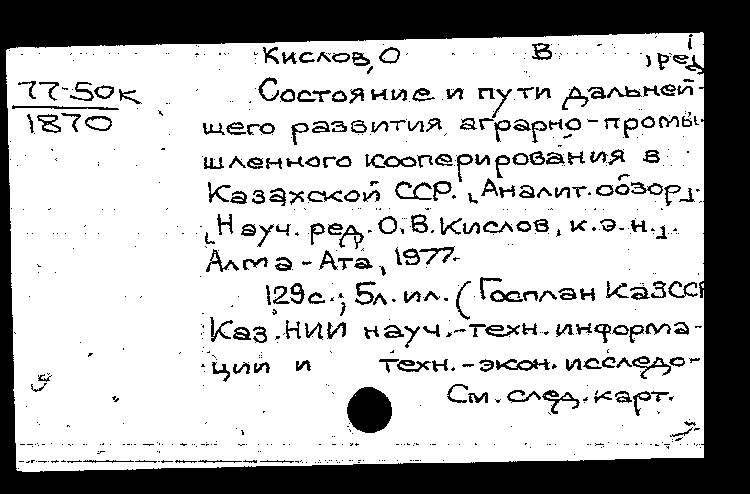 Кислов, О В , ред
77-50к
1870
Состояние и пути дальней-
шего развития аграрно-промы-
шленного кооперирования в
Казахской ССР. [Аналит. обзор].
[Науч. ред. О.В. Кислов, к.э.н.].
Алма-Ата, 1977.
129 с.; 5 л. ил. (Госплан КазССР
Каз. НИИ науч.-техн. информа-
ции и техн.-экон. исследо-
См. след. карт.